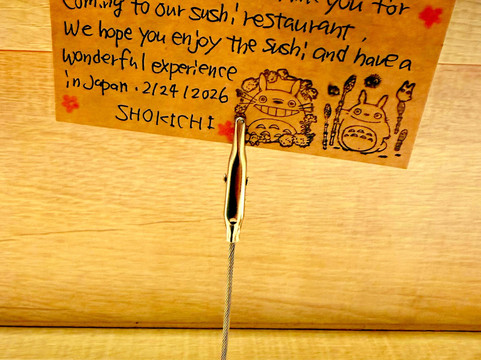 you for
coming to our sushi restaurant.
We hope you enjoy the sushi and have a
wonderful experience
in Japan. 2/24/2026
SHOKICHI